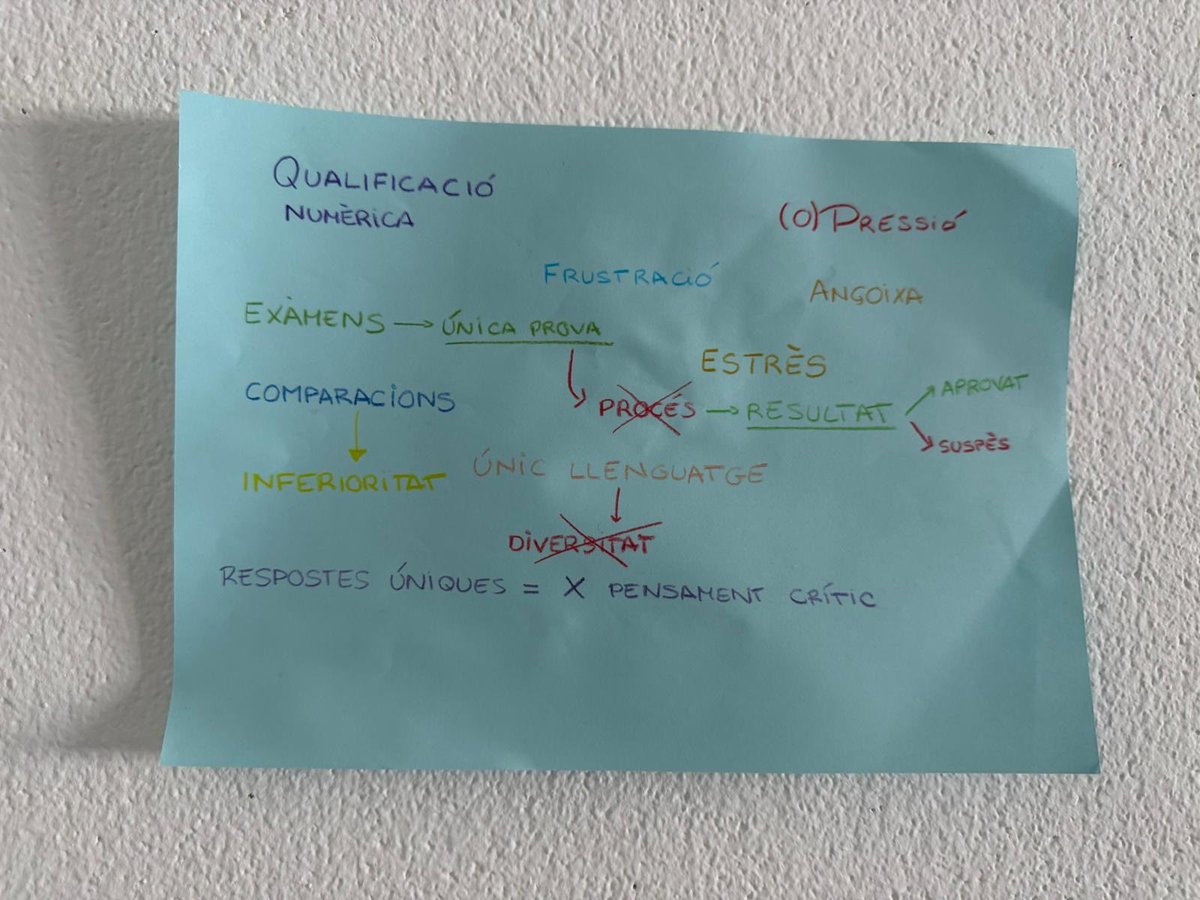 QUALIFICACIÓ
NUMÈRICA
(O)PRESSIÓ
FRUSTRACIÓ
ANGOIXA
EXÀMENS → ÚNICA PROVA
ESTRÈS
PROCÉS → RESULTAT
APROVAT
SUSPÈS
COMPARACIONS
INFERIORITAT
ÚNIC LLENGUATGE
DIVERSITAT
RESPOSTES ÚNIQUES = X PENSAMENT CRÍTIC